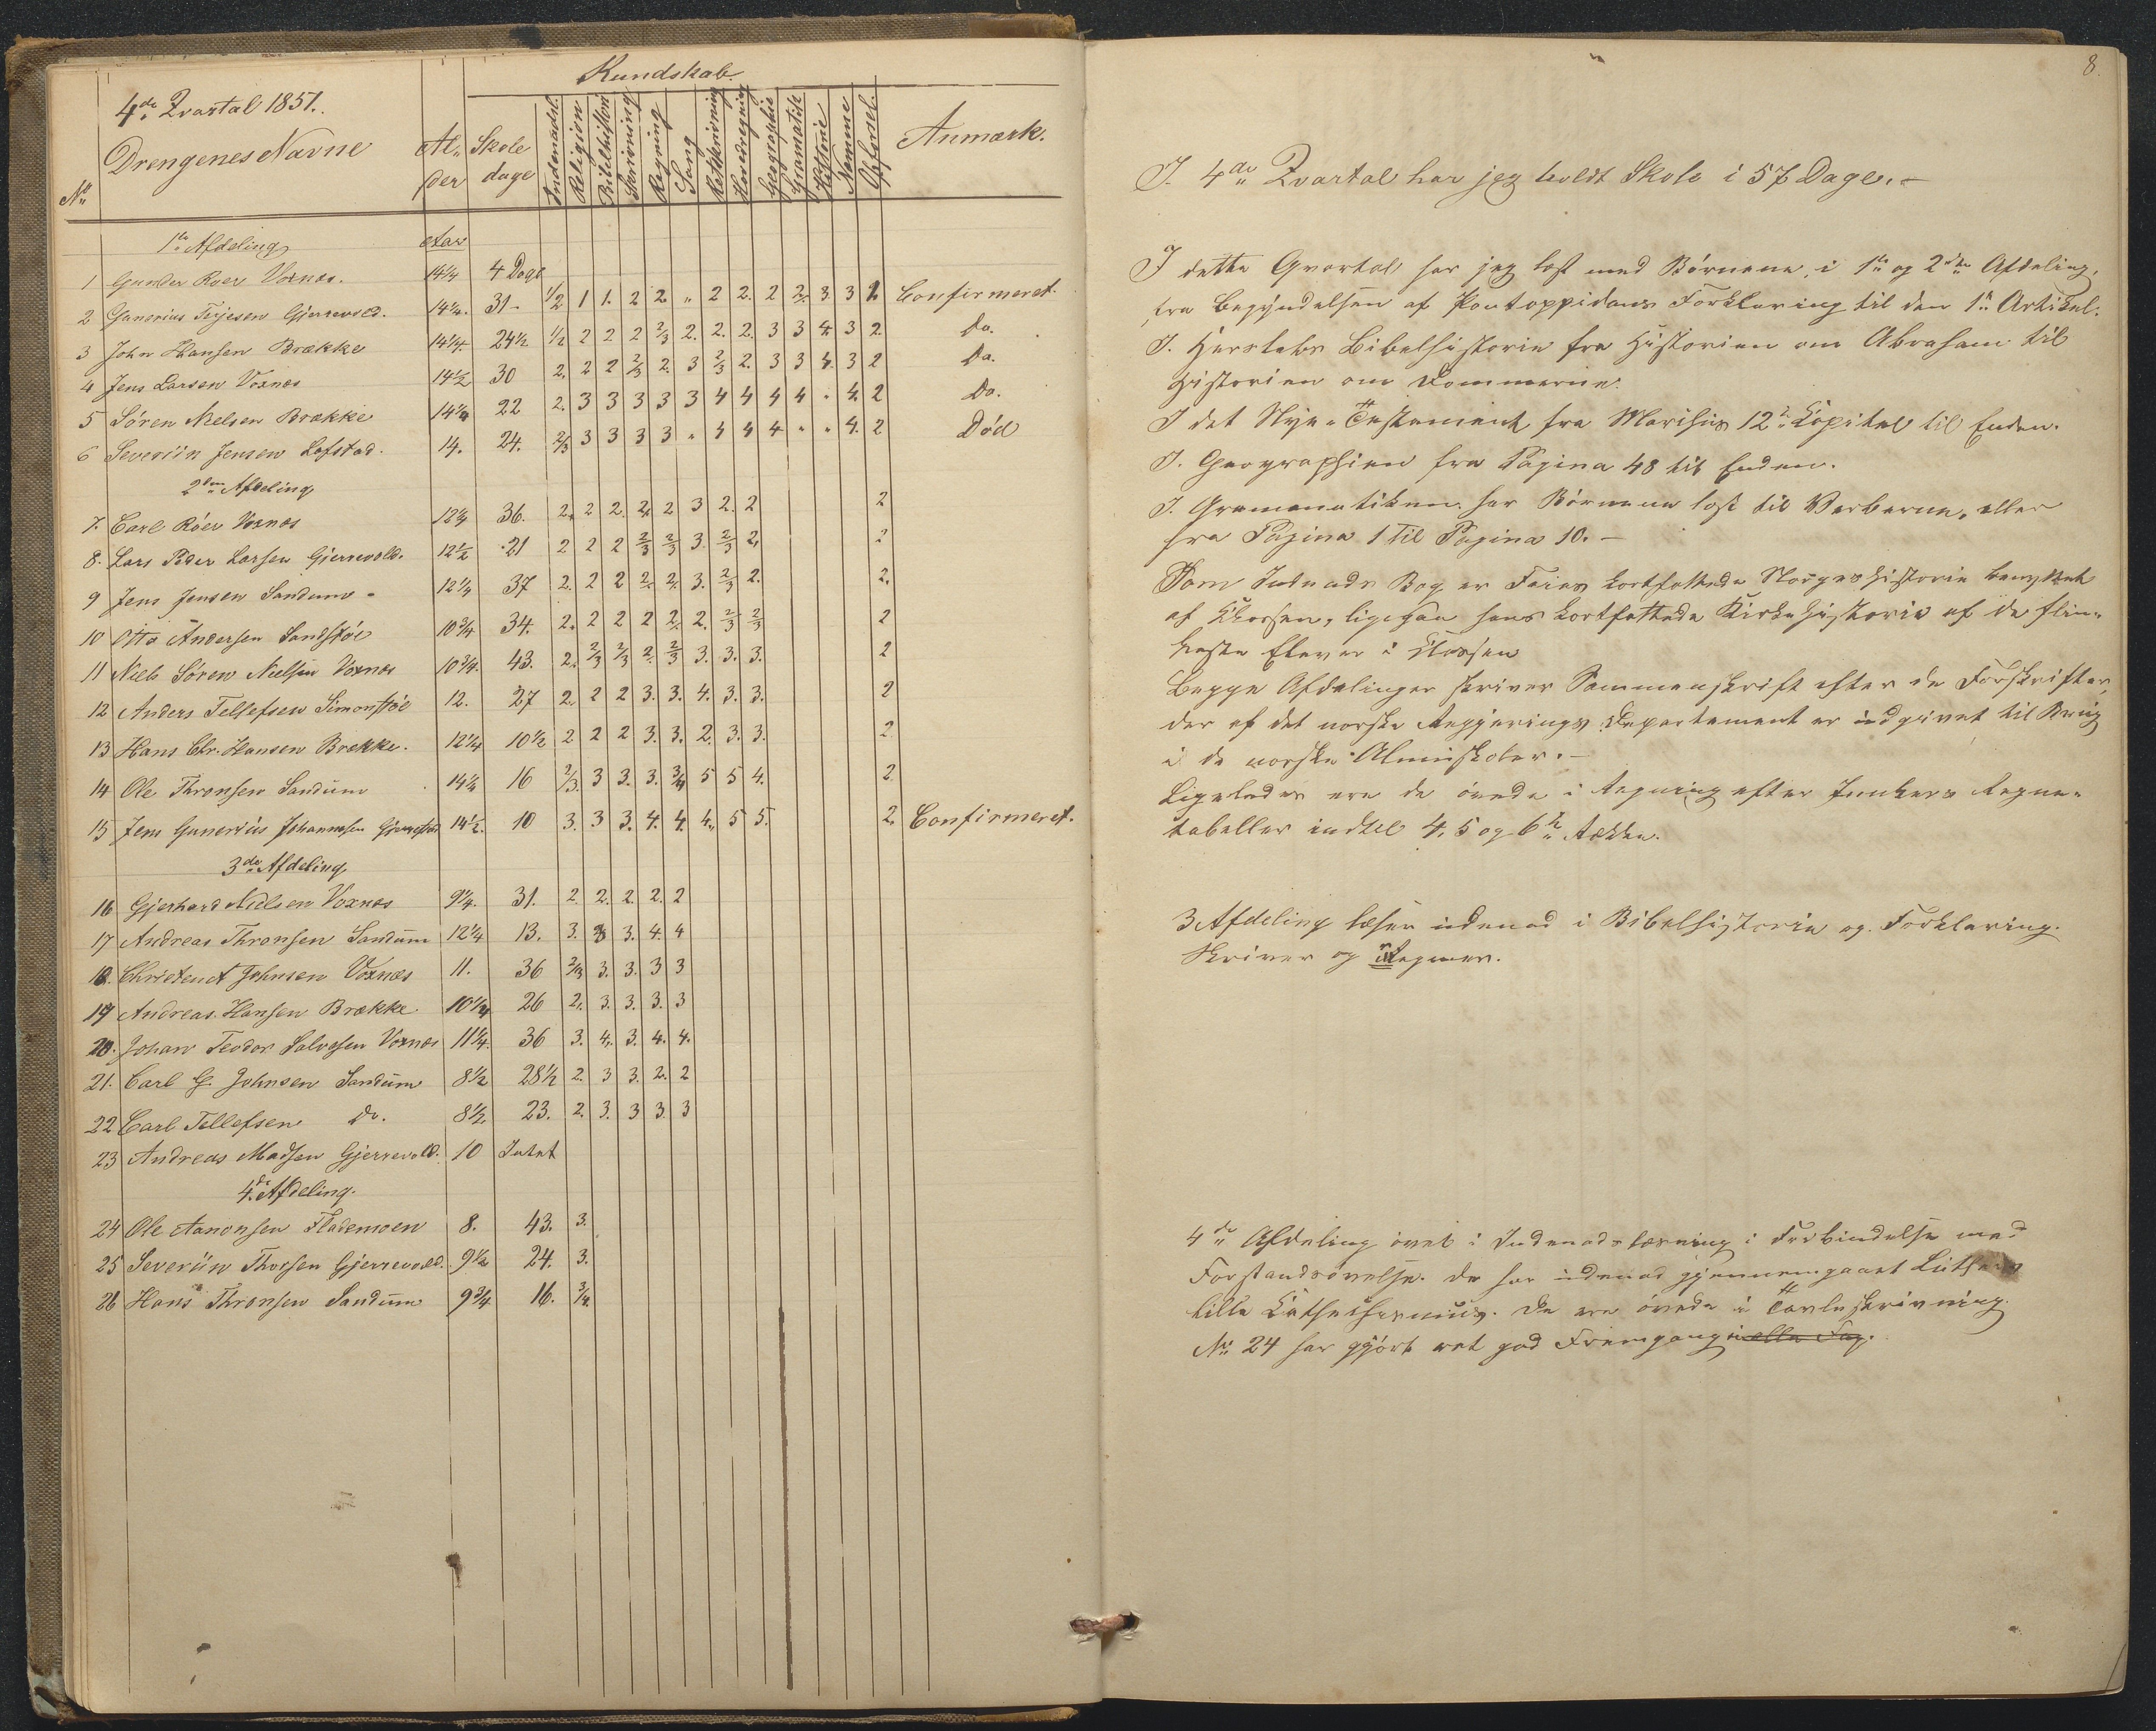 Kundskab.
4de Qvartal 1851.
No Drengenes Navne Al- der Skole dage Indenadsl. Religion Bibelhistori Skrivning Regning Sang Retskrivning Hovedregning Geographie Gramatik Historie Nemme Opførsel. Anmærk.
1te Afdeling Aar
1 Gunder Roer Voxnæs. 14 1/4 4 Dage
2 Gunerius Terjesen Gjerrevold. 14 1/4. 31 - 1/2 1 1. 2 2. " 2 2. 2 2. 3 3 1. Confirmeret.
3 John Hansen Brække 14 1/4. 24 1/2 1/2 2 2 2 2/3 2. 2. 2. 3 3 4. 3 2. Do.
4 Jens Larsen Voxnæs 14 1/2 30 2. 2 2 2/3 2. 3 2/3 2. 3 3 4. 3 2 Do.
5 Søren Nielsen Brække 14 1/4 22 2. 3 3 3 3 3 4 4 4 4 " 4. 2 Do.
6 Severiin Jensen Løfstad. 14. 24. 2/3 3 3 3 3 " 4 4 4 " " 4. 2 Død
2den Afdeling
7. Carl Röer Voxnæs 12 1/4 36. 2. 2 2. 2. 2 3 2. 2 2
8. Lars Peder Larsen Gjerrevold. 12 1/2 21 2 2 2 2/3 2/3 3. 2/3 2. 2
9 Jens Jensen Sandum - 12 1/4 37 2. 2 2 2. 2. 3. 2/3 2. 2.
10 Otto Andersen Sandstøl 10 3/4 34. 2. 2 2 2 2. 2. 2/3 2/3 2
11 Niels Søren Nielsen Voxnæs 10 3/4. 43. 2. 2/3 2/3 2. 2/3 3. 3. 3. 2
12 Anders Tellefsen Simonstøl 12. 27 2. 2 2 3. 3. 4. 3. 3. 2
13 Hans Chr. Hansen Brække. 12 1/4 10 1/2 2 2 2 3. 3. 2. 3. 3. 2.
14 Ole Thronsen Sandum 14 1/4 16 2/3. 3 3. 3. 3/4 5 5 4. 2.
15 Jens Gunerius Johannesen Gjerrestad 14 1/2. 10 3. 3 3. 4. 4. 4. 5 5. 2. Confirmeret.
3de Afdeling
16 Gjerhard Nielsen Voxnæs 9 1/4. 31. 2. 2. 2. 2. 2
17 Andreas Thronsen Sandum 12 1/4 13. 3. 3 3. 4. 4
18. Christen A Johnsen Voxnæs 11. 36 2/3 3. 3. 3 3
19 Andreas Hansen Brække 10 1/4 26 2. 3. 3. 3. 3
20. Johan Teodor Salvesen Voxnæs 11 1/4. 36 3. 4. 3. 4. 4.
21. Carl G. Johnsen Sandum 8 1/2 28 1/2 2. 3 3. 2. 2
22 Carl Tellefsen do. 8 1/2. 23. 2. 3. 3 3. 3
23 Andreas Madsen Gjerrevold. 10 Intet
4de Afdeling.
24 Ole Aanonsen Flademoen 8. 43. 3.
25 Severiin Thorsen Gjerrevold. 9 1/2 24. 3.
26 Hans Thronsen Sandum 9 3/4 16. 3/4.
8.
I. 4de Qvartal har jeg holdt Skole i 57 Dage. -
I dette Qvartal har jeg læst med Børnene i 1te og 2den Afdeling,
fra Begyndelsen af Pontoppidans Forklaring til den 1te Artikel.
I. Herslebs Bibelhistorie fra Historien om Abraham til
Historien om Dommerne.
I det Nye-Testament fra Marcus 12te Kapitel til Enden.
I. Geographien fra Pagina 48 til Enden.
I. Grammatiken har Børnene læst til Verberne, eller
fra Pagina 1 til Pagina 10. -
Som Indenads Bog er Faies kortfattede Norgeshistorie benyttet
af Klassen, ligesaa hans kortfattede Kirkehistorie af de flin-
keste Elever i Klassen
Begge Afdelinger skriver Sammenskrift efter de Forskrifter,
der af det norske Regjerings Departement er udgivet til Brug
i de norske Almuskoler. -
Ligeledes ere de øvede i Regning efter Junkers Regne-
tabeller indtil 4, 5 og 6te Række.
3 Afdeling læser udenad i Bibelhistorie og Forklaring.
Skriver og Regner.
4de Afdeling øvet i Indenads-læsning i Forbindelse med
Forstandsøvelse. De har udenad gjennemgaaet Luthers
lille Kathechismus. De ere øvede i Tavleskrivning.
No 24 har gjort ret god Fremgang i alle Fag.